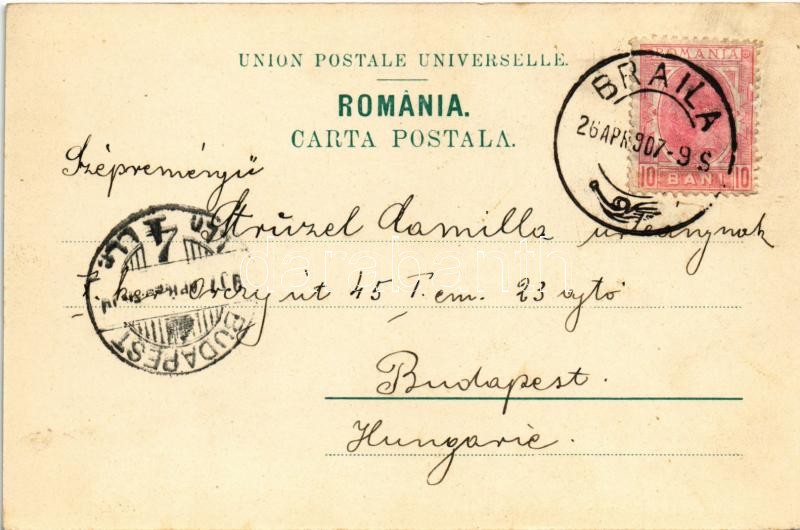 UNION POSTALE UNIVERSELLE.
ROMÂNIA.
CARTA POSTALA.
ROMANIA
10 BANI 10
BRAILA
26 APR 907-9 S
Szépreményű
Strúzel Camilla úrleánynak
út 45 I. em. 23 ajtó
Budapest.
Hungarie.
BUDAPEST
darabanth